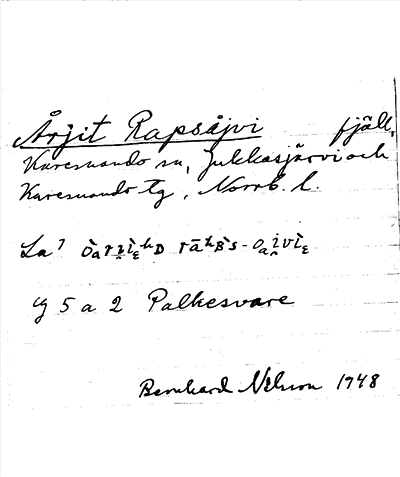 Årjit Rapsåjvi fjäll,
Karesuando sn, Jukkasjärvi och
Karesuando tg, Norrb. l.
La?
Y 5 a 2 Palkesvare
Bernhard Nilsson 1948